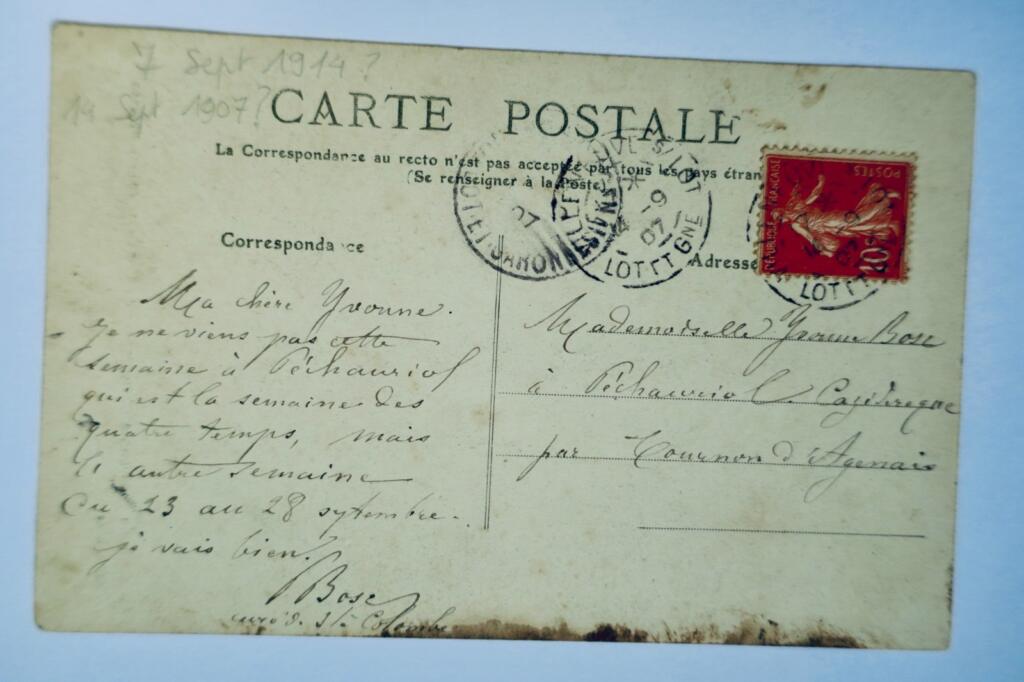 7 Sept 1914?
14 Sept 1907?
CARTE POSTALE
La Correspondance au recto n'est pas acceptée par tous les pays étran
(Se renseigner à la Poste)
Correspondance
Adresse
RÉPUBLIQUE FRANÇAISE
POSTES
10c
LOT-ET-GARON
VE-S-LOT
-9
07
LOT ET GNE
07
LOT ET G
Ma chère Yvonne.
Je ne viens pas cette
semaine à Péchauriol
qui est la semaine des
quatre temps, mais
l'autre semaine
Du 23 au 28 septembre.
je vais bien.
Bosc
curé d. Ste Colombe
Mademoiselle Yvonne Bosc
à Péchauriol Cazideroque
par Tournon d'Agenais